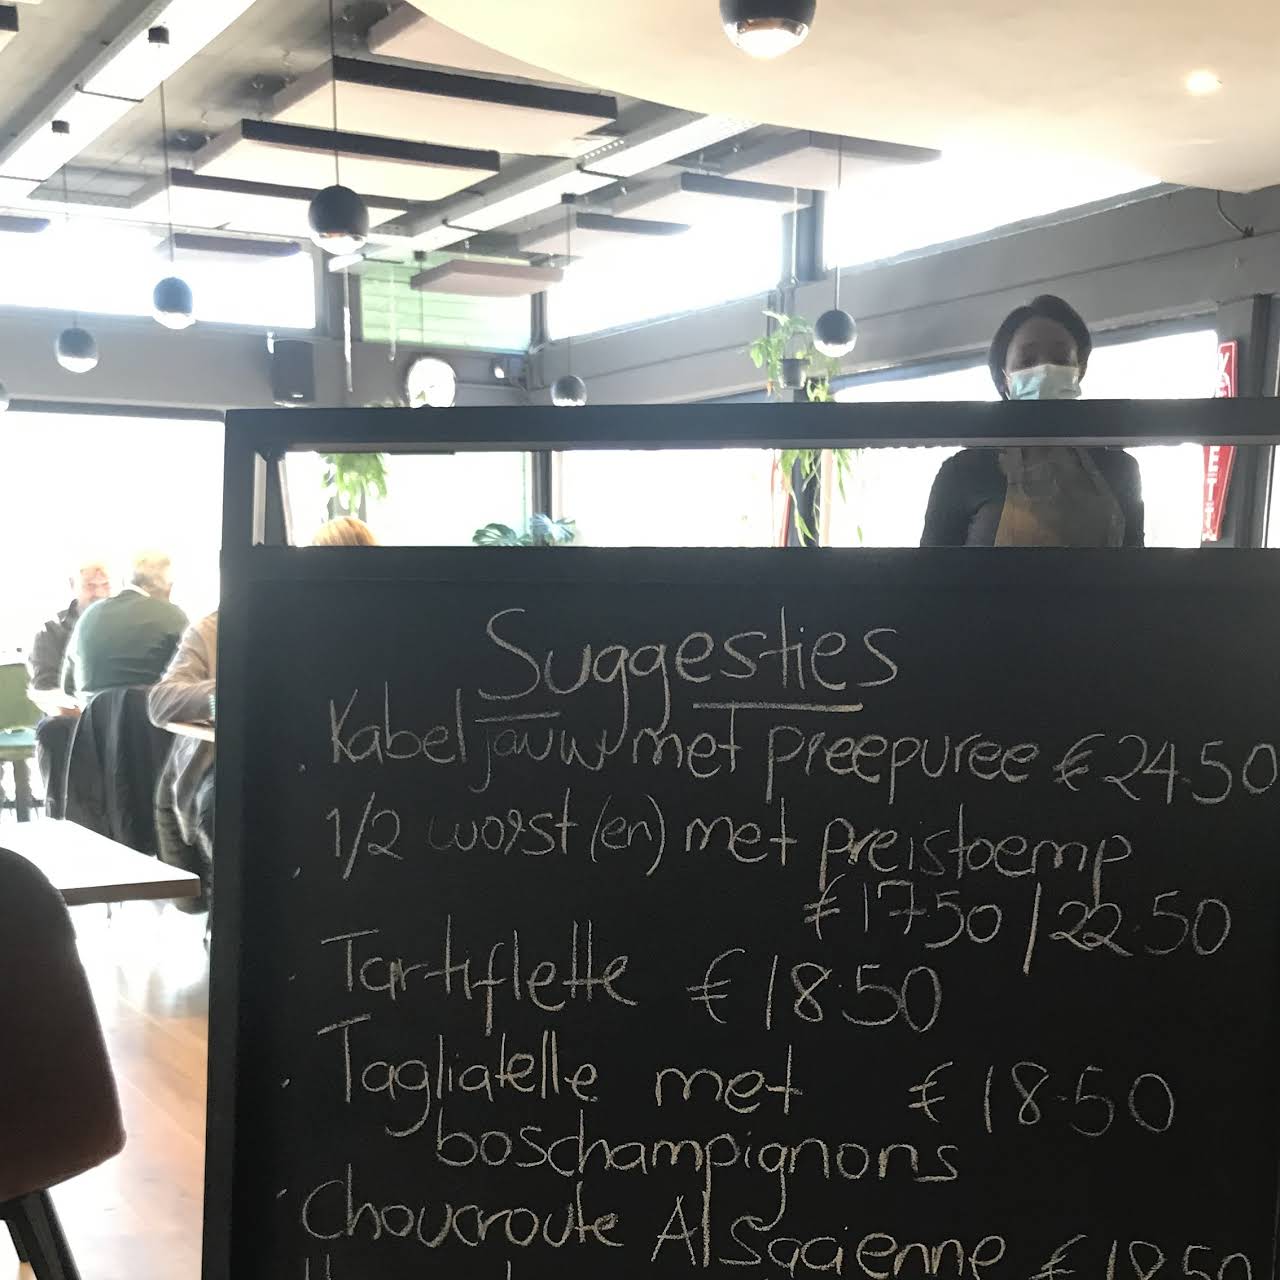 Suggesties
Kabeljauw met preepuree € 24.50
1/2 worst(en) met preistoemp
€ 17.50 / 22.50
Tartiflette € 18.50
Tagliatelle met € 18.50
boschampignons
Choucroute Alsacienne €